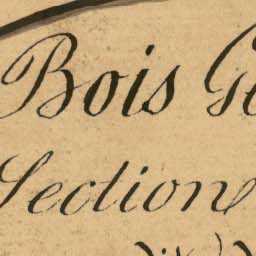 Bois
Section